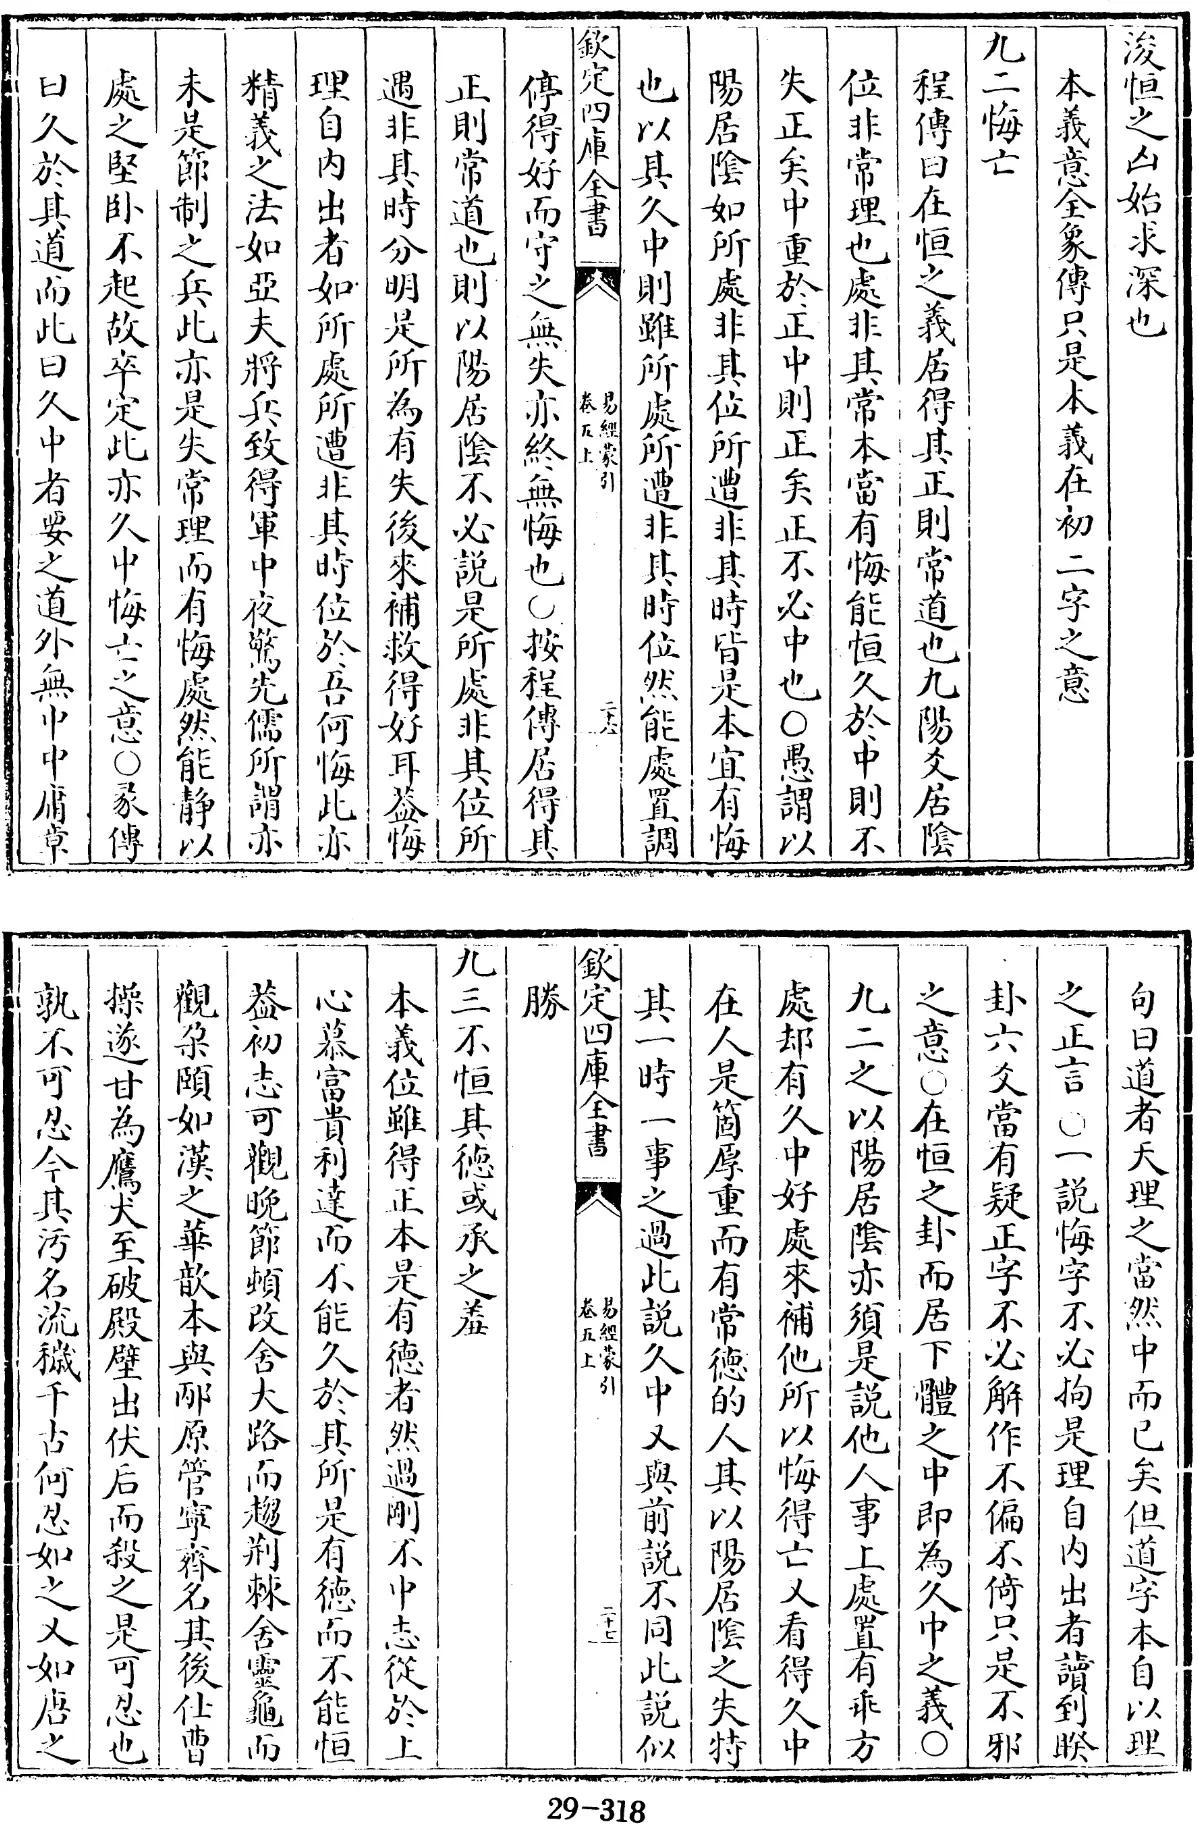 浚恒之凶始求深也
本義意全象傳只是本義在初二字之意
九二悔亡
程傳曰在恒之義居得其正則常道也九陽爻居陰
位非常理也處非其常本當有悔能恒久於中則不
失正矣中重於正中則正矣正不必中也○愚謂以
陽居陰如所處非其位所遭非其時皆是本宜有悔
也以其久中則雖所處所遭非其時位然能處置調
欽定四庫全書
易經蒙引
卷五上
二十六
停得好而守之無失亦終無悔也○按程傳居得其
正則常道也則以陽居陰不必説是所處非其位所
遇非其時分明是所為有失後來補救得好耳葢悔
理自内出者如所處所遭非其時位於吾何悔此亦
精義之法如亞夫將兵致得軍中夜驚先儒所謂亦
未是節制之兵此亦是失常理而有悔處然能靜以
處之堅卧不起故卒定此亦久中悔亡之意○彖傳
曰久於其道而此曰久中者要之道外無中中庸章
句曰道者天理之當然中而已矣但道字本自以理
之正言○一説悔字不必拘是理自内出者讀到睽
卦六爻當有疑正字不必解作不偏不倚只是不邪
之意○在恒之卦而居下體之中即為久中之義○
九二之以陽居陰亦須是説他人事上處置有乖方
處却有久中好處來補他所以悔得亡又看得久中
在人是箇厚重而有常德的人其以陽居陰之失特
其一時一事之過此説久中又與前説不同此説似
欽定四庫全書
易經蒙引
卷五上
二十七
勝
九三不恒其德或承之羞
本義位雖得正本是有德者然過剛不中志從於上
心慕富貴利達而不能久於其所是有德而不能恒
葢初志可觀晚節頓改舍大路而趨荆棘舍靈龜而
觀朶頤如漢之華歆本與邴原管寧齊名其後仕曹
操遂甘為鷹犬至破殿壁出伏后而殺之是可忍也
孰不可忍今其汚名流穢千古何忍如之又如唐之
29-318